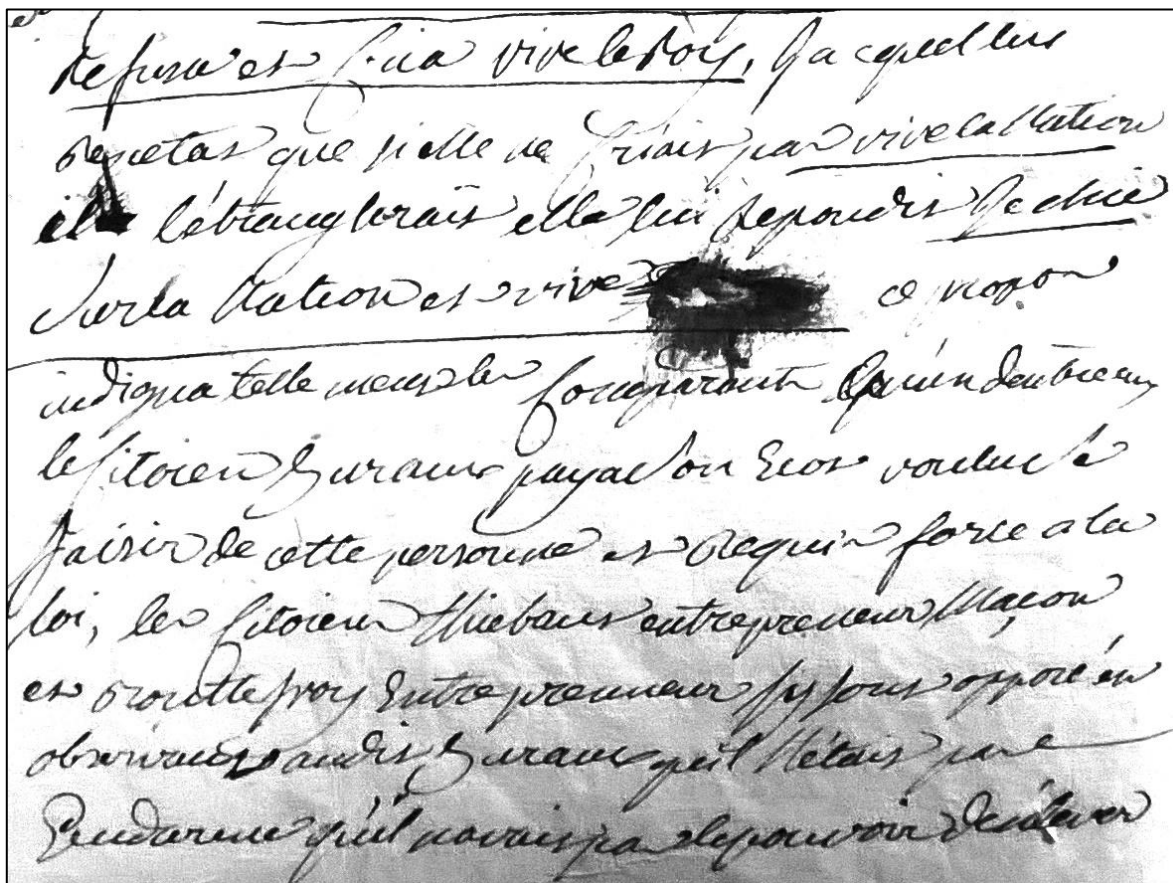 Refusa et Cria vive le Roy, Jacquet lui
repetat que si elle ne Criais pas vive la Nation
il l'étranglerais elle lui repondis Je chie
Sur la Nation et vive ce propos
indigna tellement les Comparants qu'un d'entre eux
le Citoien Buraux payadon Ecos voulu se
Saisir de cette personne et requis force a la
loi, les Citoiens Thiebaut entrepreneur Macon
et Entrepreneur s'y sont opposé en
observant audit Buraux qu'il N'étais pas
Gendarme qu'il n'avais pas le pouvoir